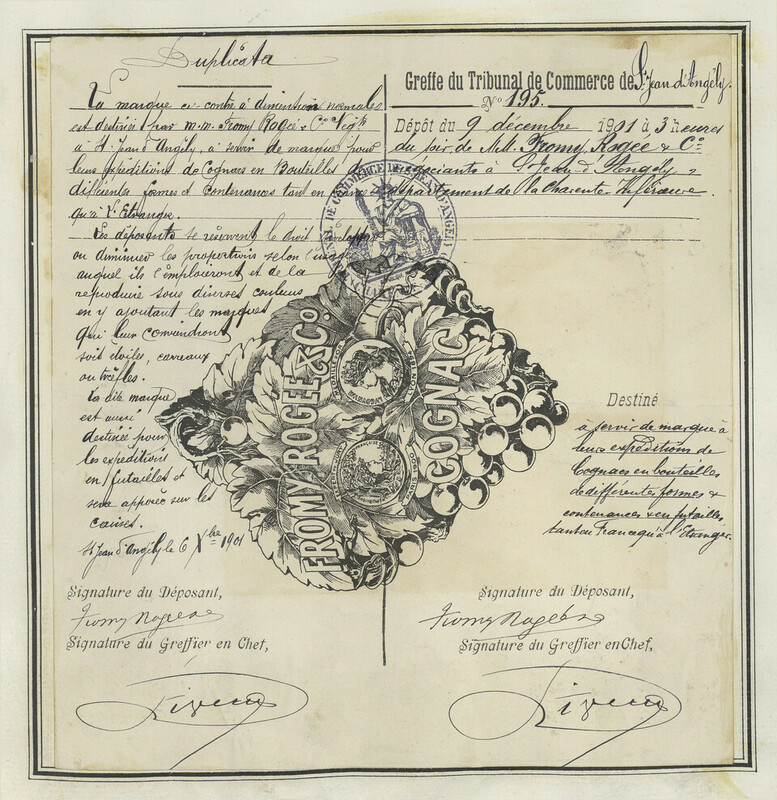 Duplicata
La marque ci-contre à dimention normales
est destinée par M.M. Fromy Rogée & Cie Negts
à St Jean d'Angély, à servir de marque pour
leurs expéditions de Cognacs en Bouteilles de
différentes formes et contenances tant en France
qu'à l'Etranger.
Les déposants se réservent le droit
ou diminuer les proportions selon l'usage
auquel ils l'emploieront et de la
reproduire sous diverses couleurs
en y ajoutant les marques
qui leur conviendront
soit étoiles, carreaux
ou trèfles.
La dite marque
est aussi
destinée pour
les expéditions
en futailles et
sera apposée sur les
caisses.
St Jean d'Angély le 6 Xbre 1901
Signature du Déposant,
Fromy Rogée
Signature du Greffier en Chef,
Greffe du Tribunal de Commerce de St Jean d'Angély.
No 195.
Dépôt du 9 décembre 1901 à 3 heures
du soir, de MM. Fromy, Rogée & Cie
négociants à St Jean d'Angély,
département de la Charente-Inférieure.
FROMY ROGÉE & Co.
COGNAC
Destiné
à servir de marque à
leurs expéditions de
Cognacs en bouteilles
de différentes formes &
contenances & en futailles,
tant en France qu'à l'Etranger.
Signature du Déposant,
Fromy Rogée
Signature du Greffier en Chef,